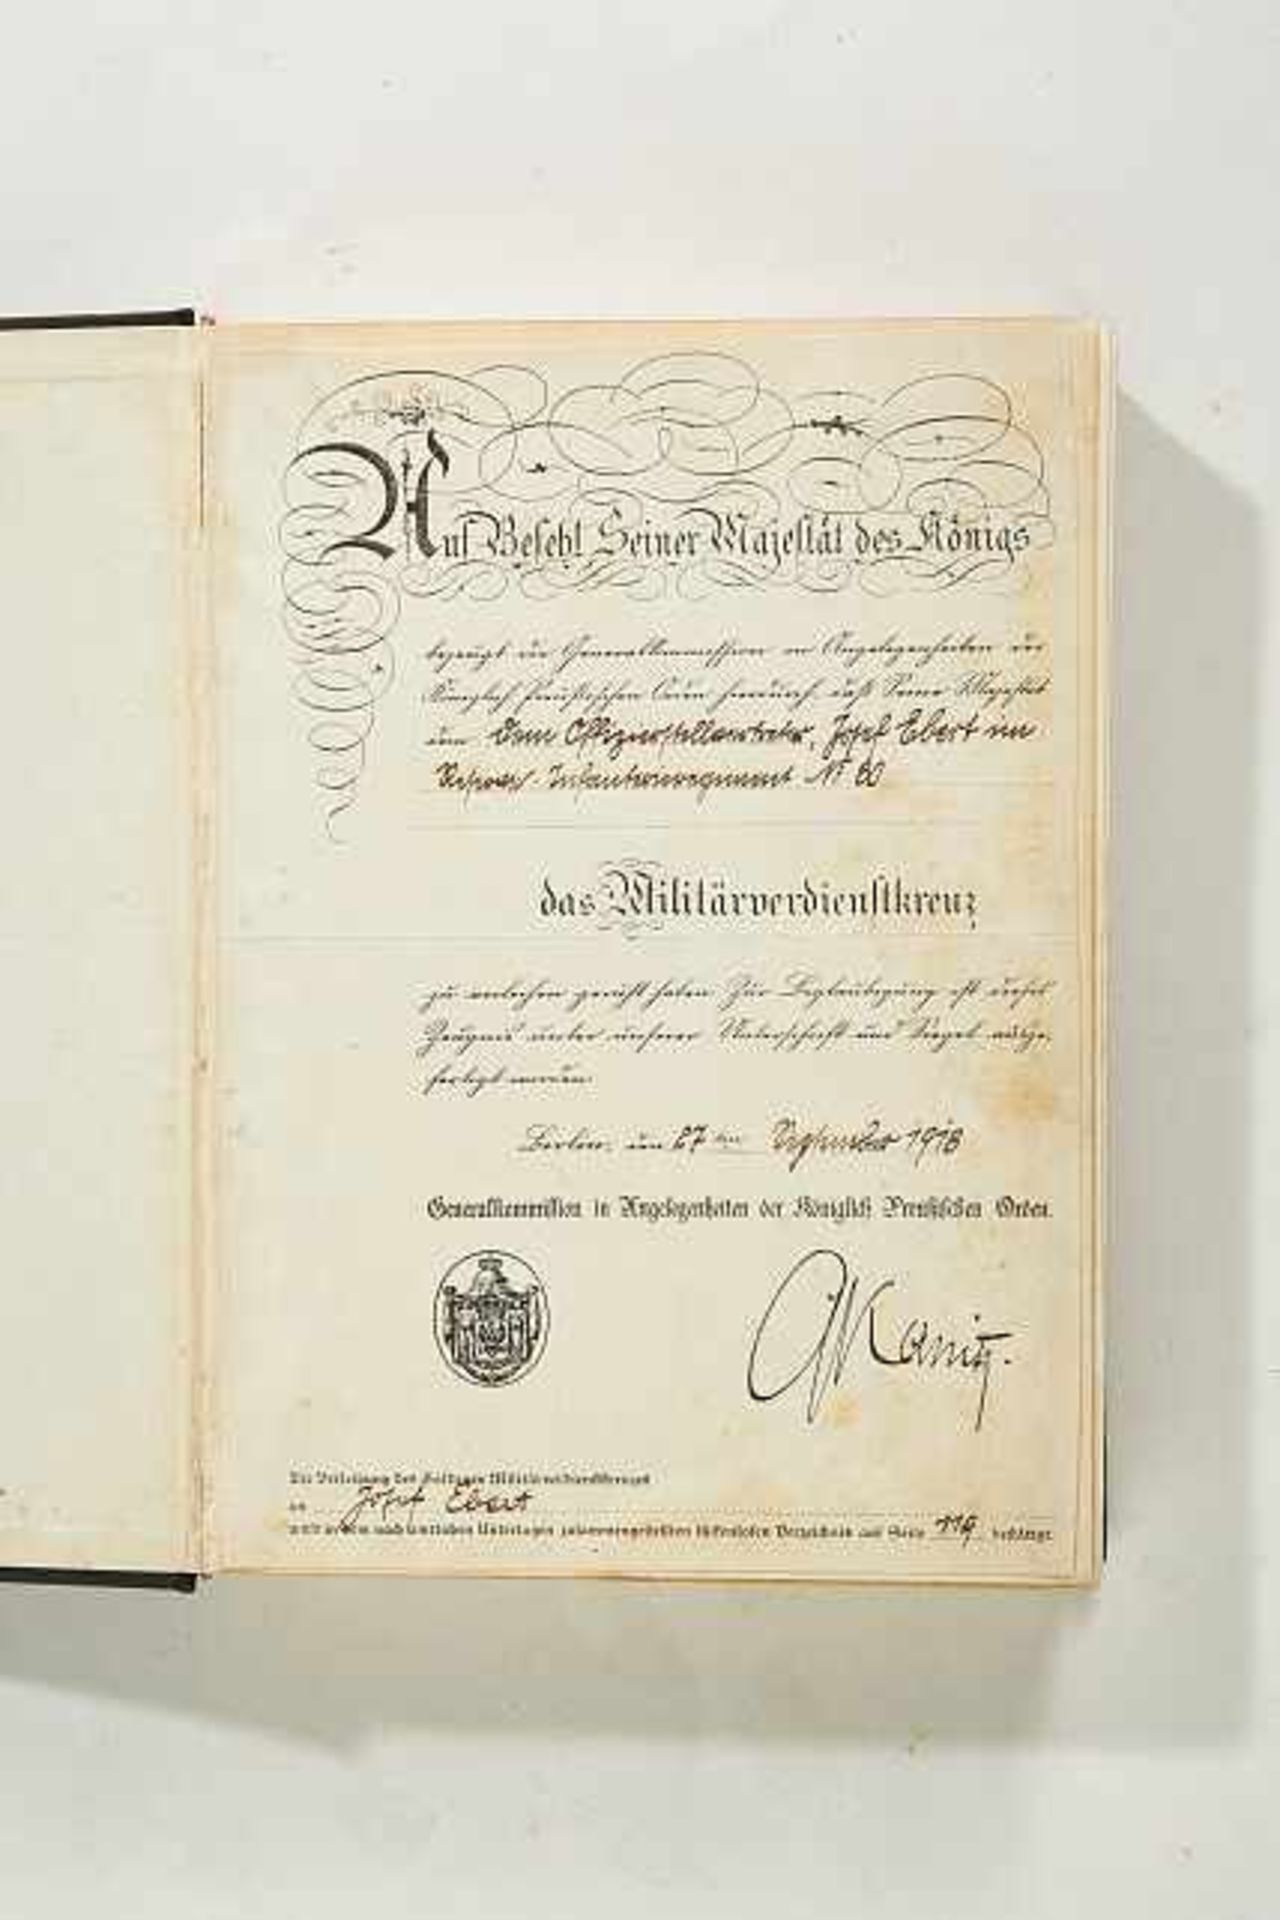 Auf Befehl Seiner Majestät des Königs
bezeugt die Generalkommission in Angelegenheiten der
Königlich Preußischen Orden hierdurch, daß Seine Majestät
dem Dem Offizierstellvertreter, Josef Ebert im
Reserve-Infanterieregiment Nr 80
das Militärverdienstkreuz
zu verleihen geruht haben. Zur Beglaubigung ist dieses
Zeugnis unter unserer Unterschrift und Siegel ausge-
fertigt worden.
Berlin, den 27 ten September 1918
Generalkommission in Angelegenheiten der Königlich Preußischen Orden.
Kanitz.
Die Verleihung des Goldenen Militärverdienstkreuzes
an Josef Ebert
wird in dem nach amtlichen Unterlagen zusammengestellten lückenlosen Verzeichnis auf Seite 119 bestätigt.